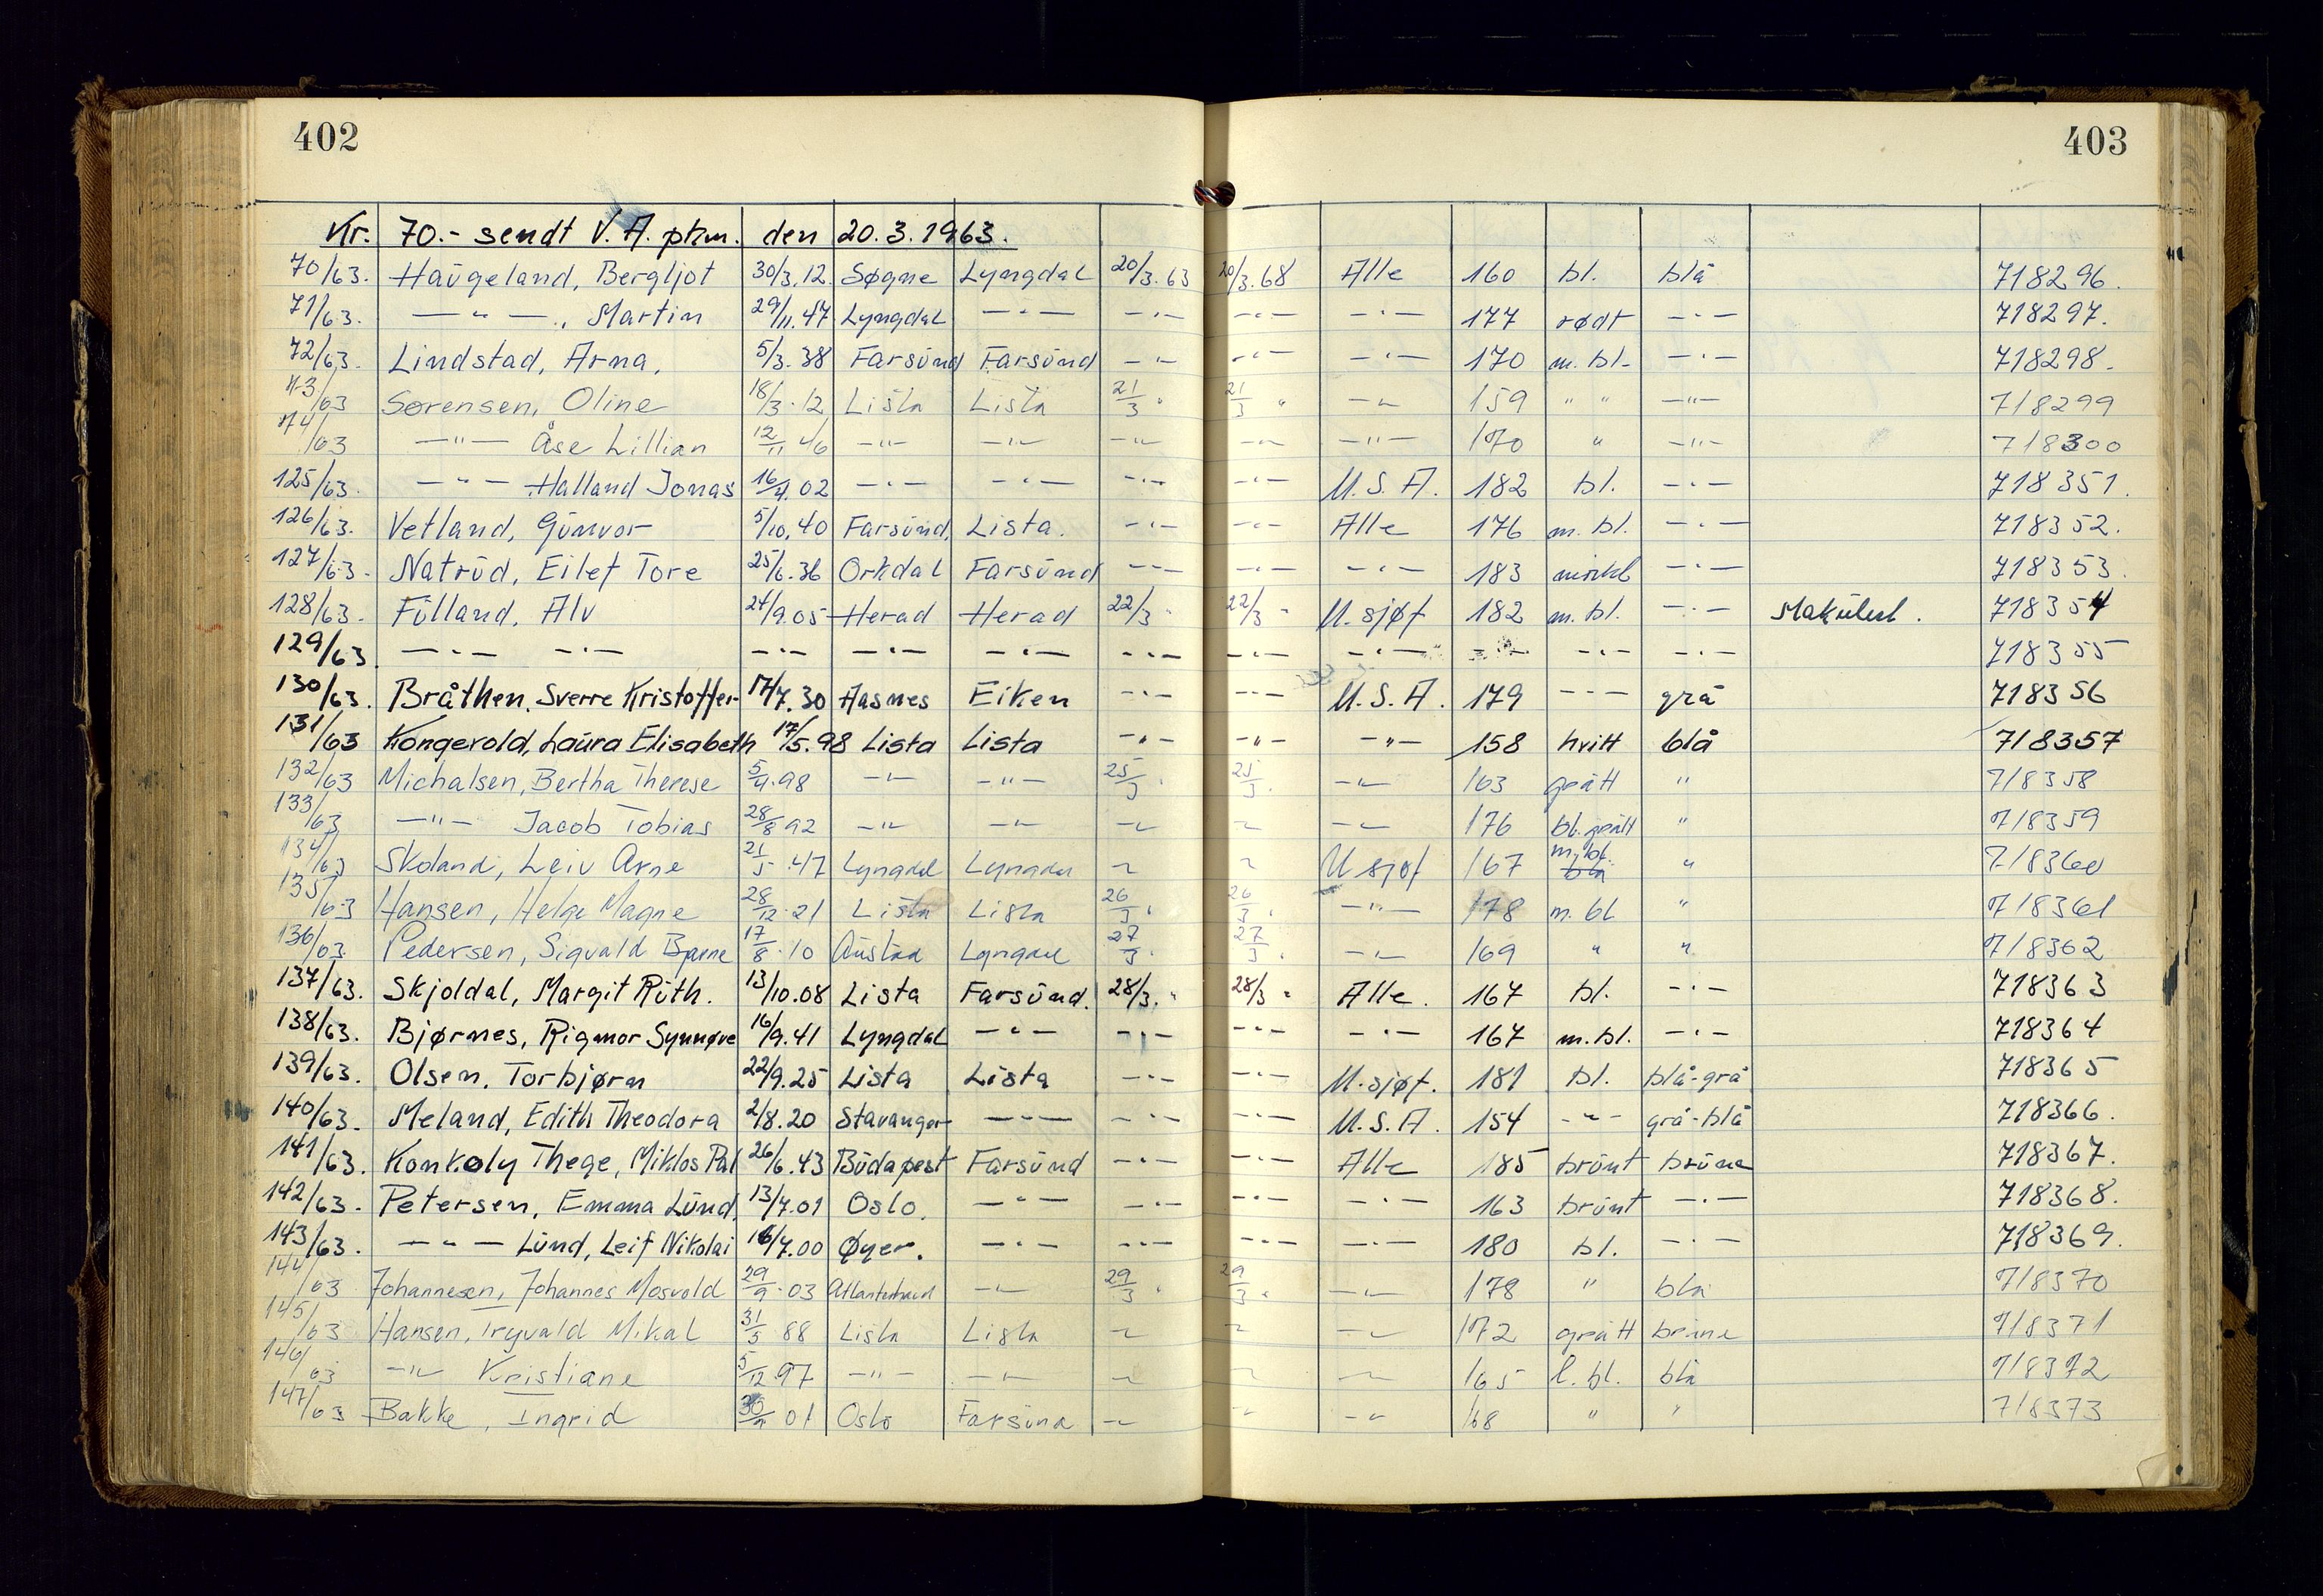 402
403
Kr. 70.- sendt V. A. pkm. den 20.3.1963.
70/63. Haugeland, Bergljot 30/3.12. Søgne Lyngdal 20/3.63 20/3.68 Alle 160 bl. blå 718296.
71/63. — " —, Martin 29/11.47 Lyngdal — " — — " — — " — — " — 177 rødt — " — 718297.
72/63. Lindstad, Arna. 5/3.38 Farsund Farsund — " — " — — " — 170 m. bl. — " — 718298.
73/63 Sørensen, Oline 18/3.12 Lista Lista 21/3 " 21/3 " — " — 159 " " — " — 718299
74/63 — " — Åse Lillian 12/11 46 — " — — " — — " — — " — — " — 170 " — " — 718300
125/63. — " — Halland Jonas 16/4.02 — " — — " — — " — — " — U.S.A. 182 bl. — " — 718351.
126/63. Vetland, Gunvor 5/10.40 Farsund, Lista. — " — — " — Alle 176 m. bl. — " — 718352.
127/63. Natrud, Eilef Tore 25/6.36 Orkdal Farsund — " — — " — — " — 183 mørkbl — " — 718353.
128/63. Fulland, Alv 24/9.05 Herad Herad 22/3 " 22/3 " U. sjøf 182 m. bl. — " — Makulert. 718354
129/63 — " — — " — — " — — " — — " — — " — — " — — " — — " — — " — — " — 718355
130/63. Bråthen, Sverre Kristoffer 17/7.30 Åsnes Eiken — " — — " — U.S.A. 179 — " — grå 718356
131/63 Kongevold, Laura Elisabeth 17/5.98 Lista Lista — " — — " — — " — 158 hvitt blå 718357
132/63 Michalsen, Bertha Therese 5/4.98 — " — — " — 25/3 " 25/3 " — " — 163 grått " 718358
133/63 — " — Jacob Tobias 28/8 92 — " — — " — — " — " — " — 176 bl. grått " 718359
134/63 Skoland, Leiv Arne 21/5.47 Lyngdal Lyngdal " " U sjøf 167 m. bl. " 718360
135/63 Hansen, Helge Magne 28/12.21 Lista Lista 26/3 " 26/3 " — " — 178 m. bl " 718361
136/63 Pedersen, Sigvald Bjarne 17/8.10 Austad Lyngdal 27/3 " 27/3 " — " — 169 " " 718362
137/63. Skjoldal, Margit Ruth. 13/10.08 Lista Farsund. 28/3. " 28/3 " Alle. 167 bl. — " — 718363
138/63. Bjørnes, Rigmor Synnøve 16/9.41 Lyngdal — " — — " — — " — — " — 167 m. bl. — " — 718364
139/63. Olsen, Torbjørn 22/9.25 Lista Lista — " — — " — U. sjøf. 181 bl. blå-grå 718365
140/63. Meland, Edith Theodora 2/8.20 Stavanger — " — — " — — " — U.S.A. 154 — " — grå-blå 718366.
141/63. Konkoly Thege, Miklos Pal 26/6.43 Budapest Farsund — " — — " — Alle 185 brunt brune 718367.
142/63. Petersen, Emma Lund, 13/7.01 Oslo. — " — — " — — " — — " — 163 brunt — " — 718368.
143/63. — " — Lund, Leif Nikolai 16/7.00 Øyer. — " — — " — — " — — " — 180 bl. — " — 718369.
144/63 Johannesen, Johannes Mosvold 29/9.03 Atlanterhavet — " — 29/3 " 29/3 " — " — 178 " blå 718370
145/63 Hansen, Trygvald Mikal 31/5 88 Lista Lista " " — " — 172 grått brune 718371
146/63 — " — Kristiane 5/12 97 — " — — " — " " — " — 165 l. bl. blå 718372
147/63 Bakke, Ingrid 01 Oslo Farsund — " — " — " — 168 " " 718373